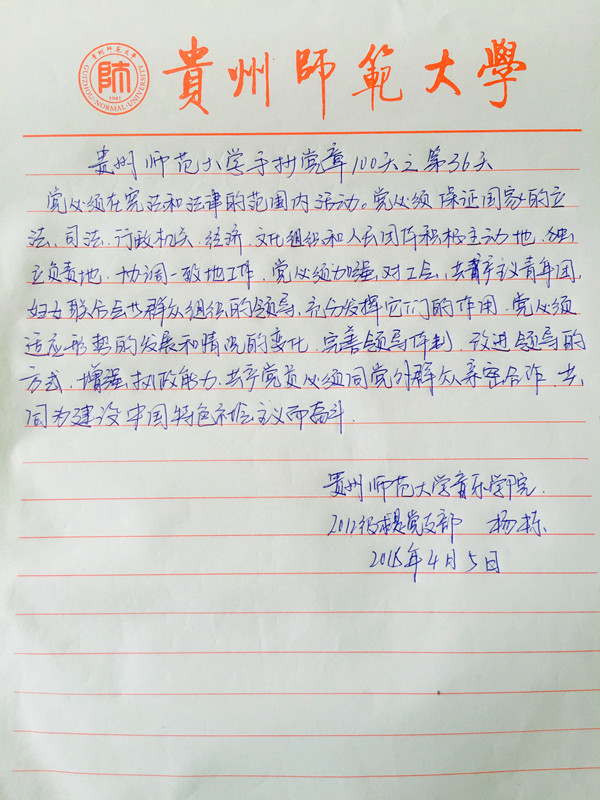 贵州师范大学
GUIZHOU·NORMAL·UNIVERSITY
師
1941
貴州師範大學
贵州师范大学手抄党章100天之第36天
党必须在宪法和法律的范围内活动。党必须保证国家的立
法、司法、行政机关、经济、文化组织和人民团体积极主动地、独
立负责地、协调一致地工作。党必须加强对工会、共产主义青年团、
妇女联合会等群众组织的领导,充分发挥它们的作用。党必须
适应形势的发展和情况的变化,完善领导体制,改进领导的
方式,增强执政能力。共产党员必须同党外群众亲密合作,共
同为建设中国特色社会主义而奋斗.
贵州师范大学音乐学院.
2012级 党支部 杨栋
2016年4月5日